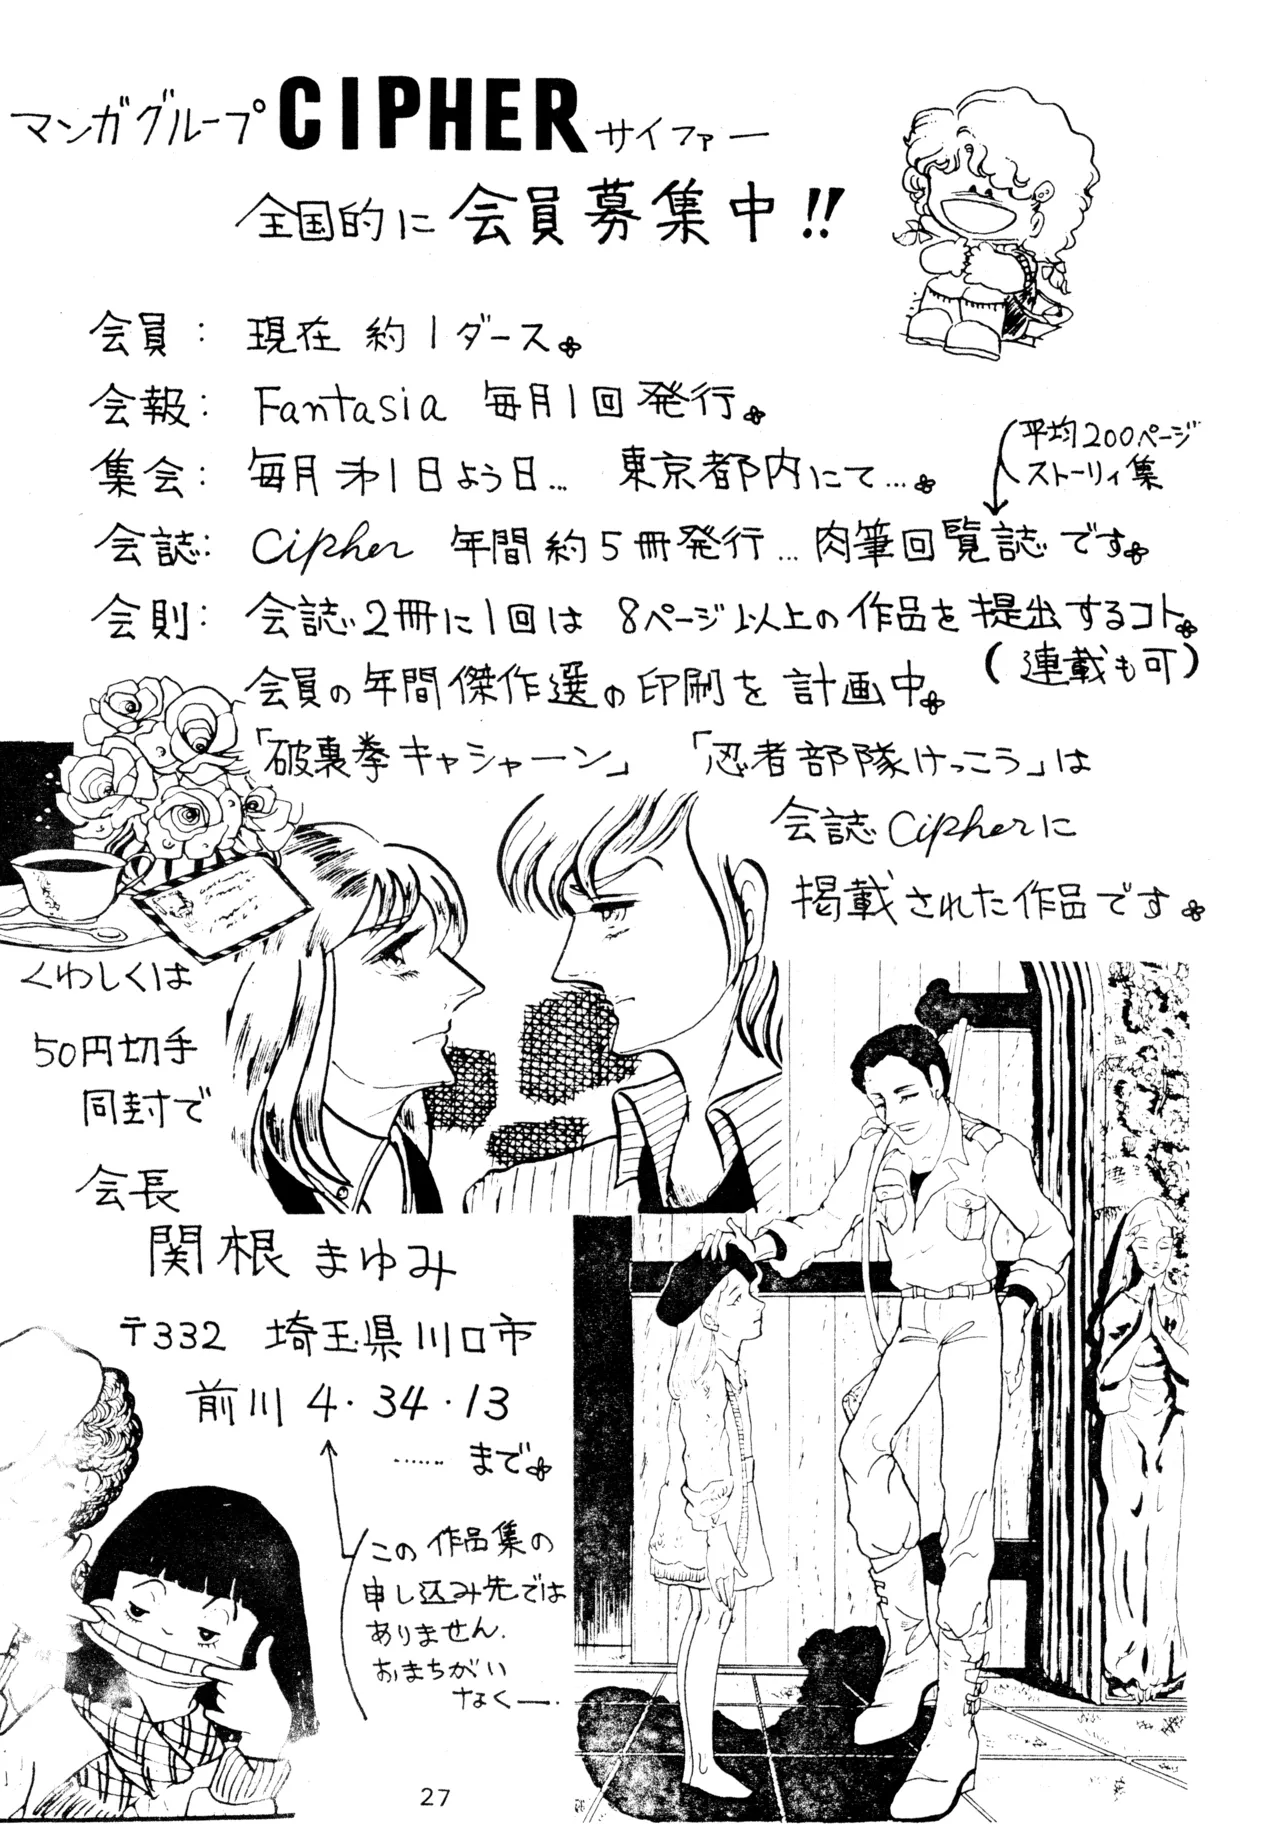 マンガグループ CIPHER サイファー
全国的に 会員募集中!!
会員: 現在 約1ダース。
会報: Fantasia 毎月1回発行。
集会: 毎月才1日よう日… 東京都内にて…。
平均200ページ
ストーリィ集
会誌: Cipher 年間約5冊発行…肉筆回覧誌です。
会則: 会誌2冊に1回は 8ページ以上の作品を提出するコト。
(連載も可)
会員の年間傑作選の印刷を計画中。
「破裏拳キャシャーン」 「忍者部隊けっこう」は
会誌Cipherに
掲載された作品です。
くわしくは
50円切手
同封で
会長
関根まゆみ
〒332 埼玉県川口市
前川 4・34・13
…… まで。
この作品集の
申し込み先では
ありません.
おまちがい
なくー.
27